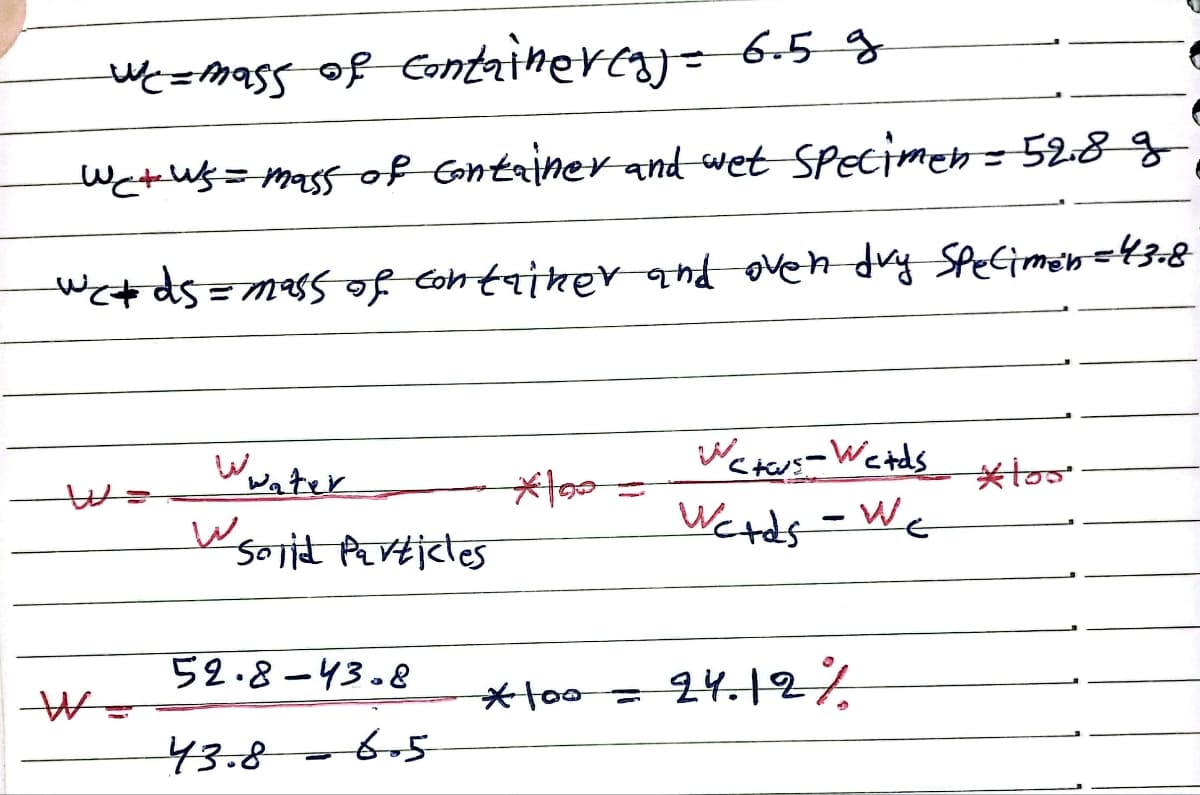 Wc = mass of container (g) = 6.5 g
Wc+ws = mass of container and wet specimen = 52.8 g
Wc+ds = mass of container and oven dry specimen = 43.8
W = W water / W solid particles * 100 = Wc+ws - Wc+ds / Wc+ds - Wc * 100
W = 52.8 - 43.8 / 43.8 - 6.5 * 100 = 24.12 %